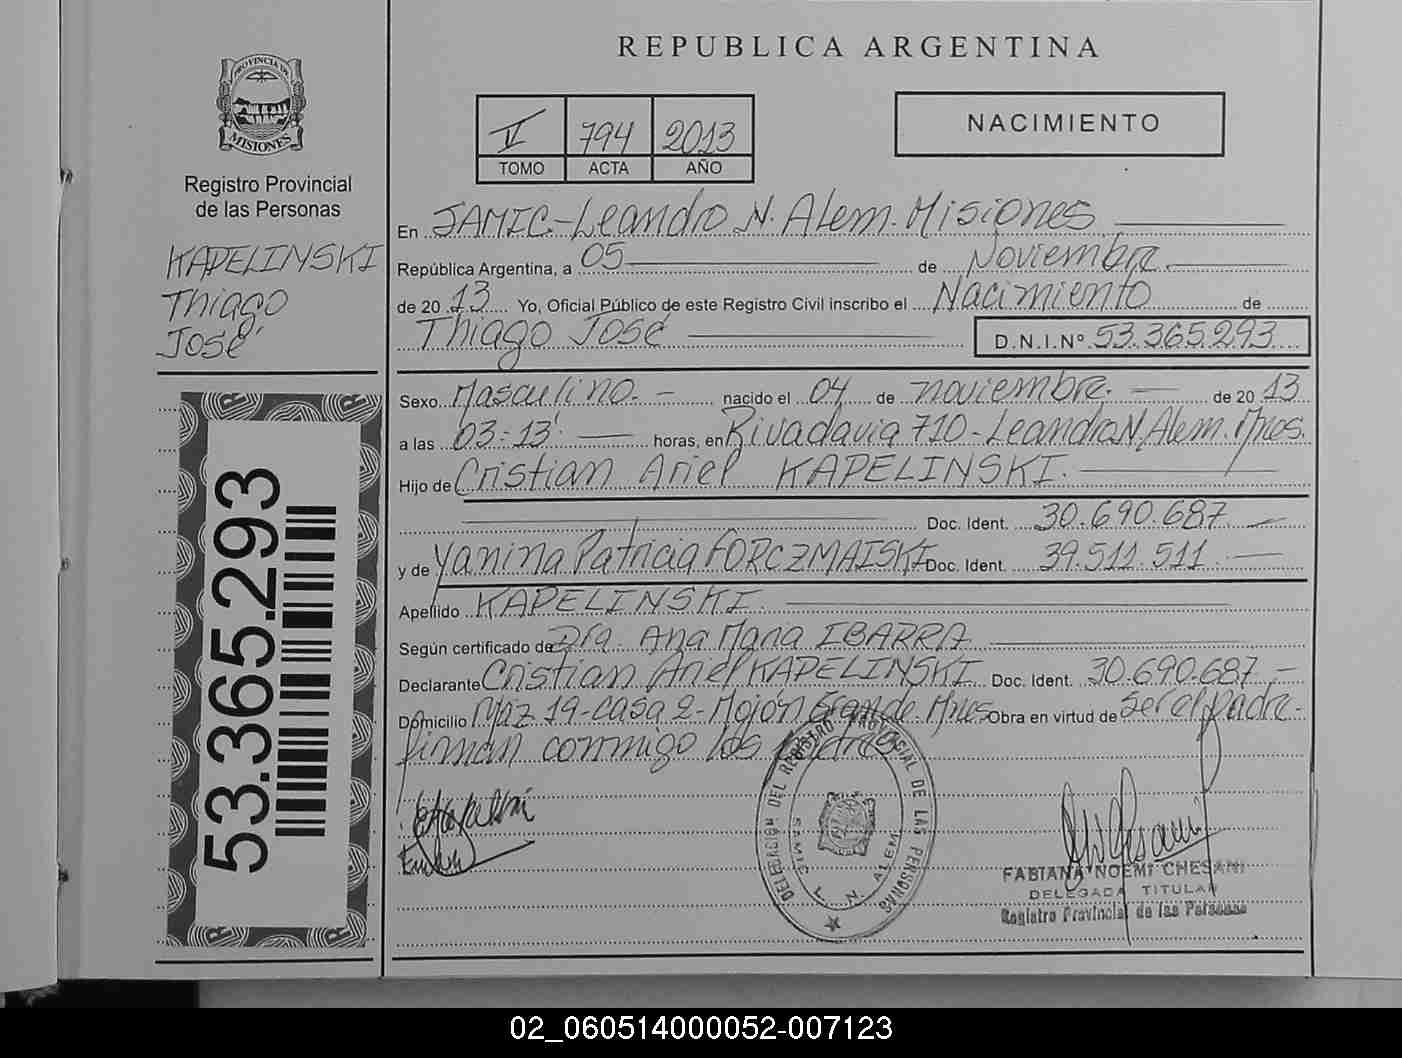 REPUBLICA ARGENTINA
PROVINCIA DE
MISIONES
Registro Provincial
de las Personas
KAPELINSKI
Thiago
José
53.365.293
V 794 2013
TOMO ACTA AÑO
NACIMIENTO
En SAMIC-Leandro N. Alem. Misiones
República Argentina, a 05 de Noviembre
de 2013 Yo, Oficial Público de este Registro Civil inscribo el Nacimiento de
Thiago José D.N.I.Nº 53.365.293
Sexo Masculino.- nacido el 04 de noviembre.- de 2013
a las 03:13' horas, en Rivadavia 710-Leandro N. Alem. Mnes.
Hijo de Cristian Ariel KAPELINSKI.
Doc. Ident. 30.690.687
y de Yanina Patricia FORCZMAISKI Doc. Ident. 39.511.511
Apellido KAPELINSKI.
Según certificado de Dra. Ana Maria IBARRA
Declarante Cristian Ariel KAPELINSKI. Doc. Ident. 30.690.687.-
Domicilio Mz 19-casa 2-Mojón Grande. Mnes Obra en virtud de ser el padre-
firman conmigo los padres
DELEGACION DEL REGISTRO PROVINCIAL DE LAS PERSONAS
SAMIC L. N. ALEM
FABIANA NOEMI CHESANI
DELEGADA TITULAR
Registro Provincial de las Personas
02_060514000052-007123